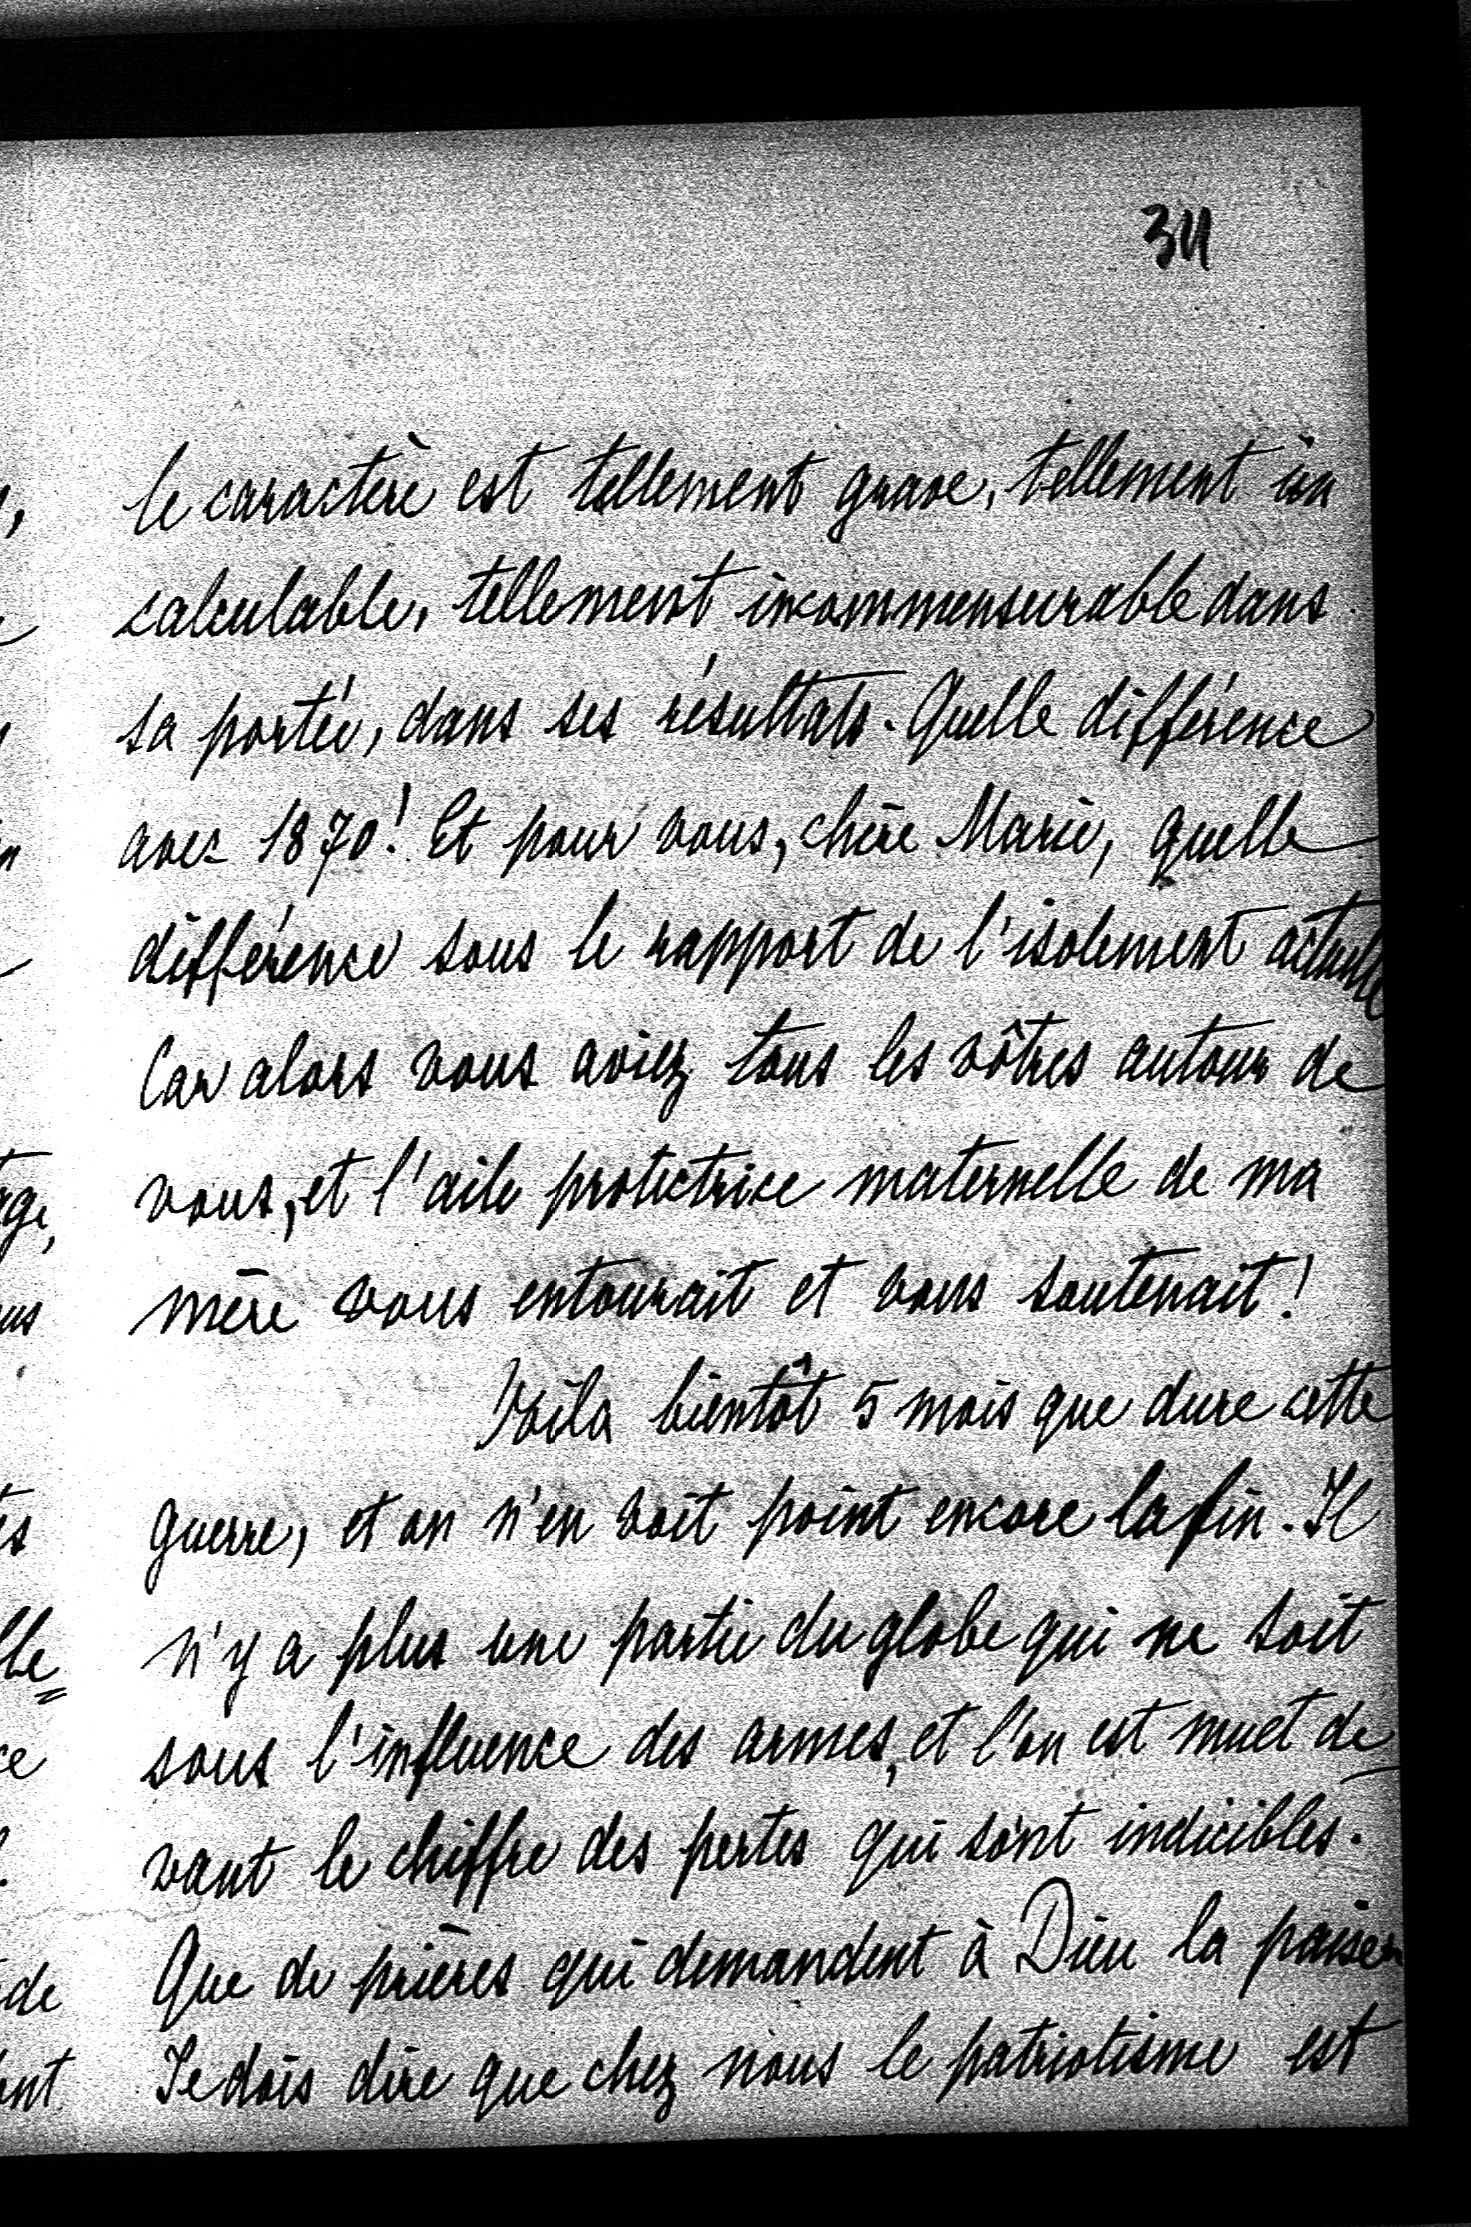 311
le caractère est tellement grave, tellement in
calculable, tellement incommensurable dans
sa portée, dans ses résultats. Quelle différence
avec 1870! Et pour vous, chère Marie, quelle
différence sous le rapport de l'isolement actuelle
Car alors vous aviez tous les vôtres autour de
vous, et l'aile protectrice maternelle de ma
mère vous entourait et vous soutenait!
Voila bientôt 5 mois que dure cette
guerre, et on n'en voit point encore la fin. Il
n'y a plus une partie du globe qui ne soit
sous l'influence des armes, et l'on est muet de
vant le chiffre des pertes qui sont indicibles.
Que de prières qui demandent à Dieu la paix
Je dois dire que chez nous le patriotisme est